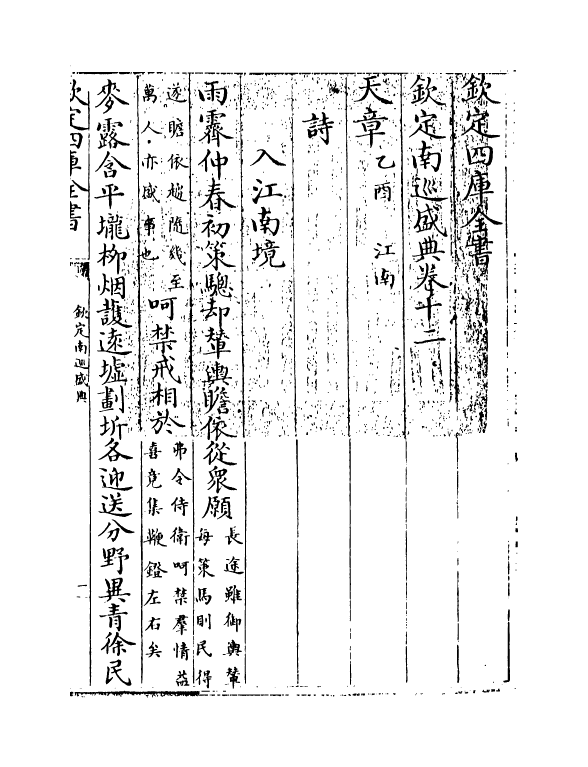 欽定四庫全書
欽定南巡盛典卷十二
天章乙酉 江南
詩
入江南境
雨霽仲春初策驄却輦輿瞻依從衆願長途雖御輿輦
每策馬則民得
遂瞻依趨隨幾至
萬人亦盛事也呵禁戒相於弗令侍衛呵禁羣情益
喜竟集鞭鐙左右矣
麥露含平壠柳烟護遠墟劃圻各迎送分野異青徐民
欽定四庫全書
欽定南巡盛典
一